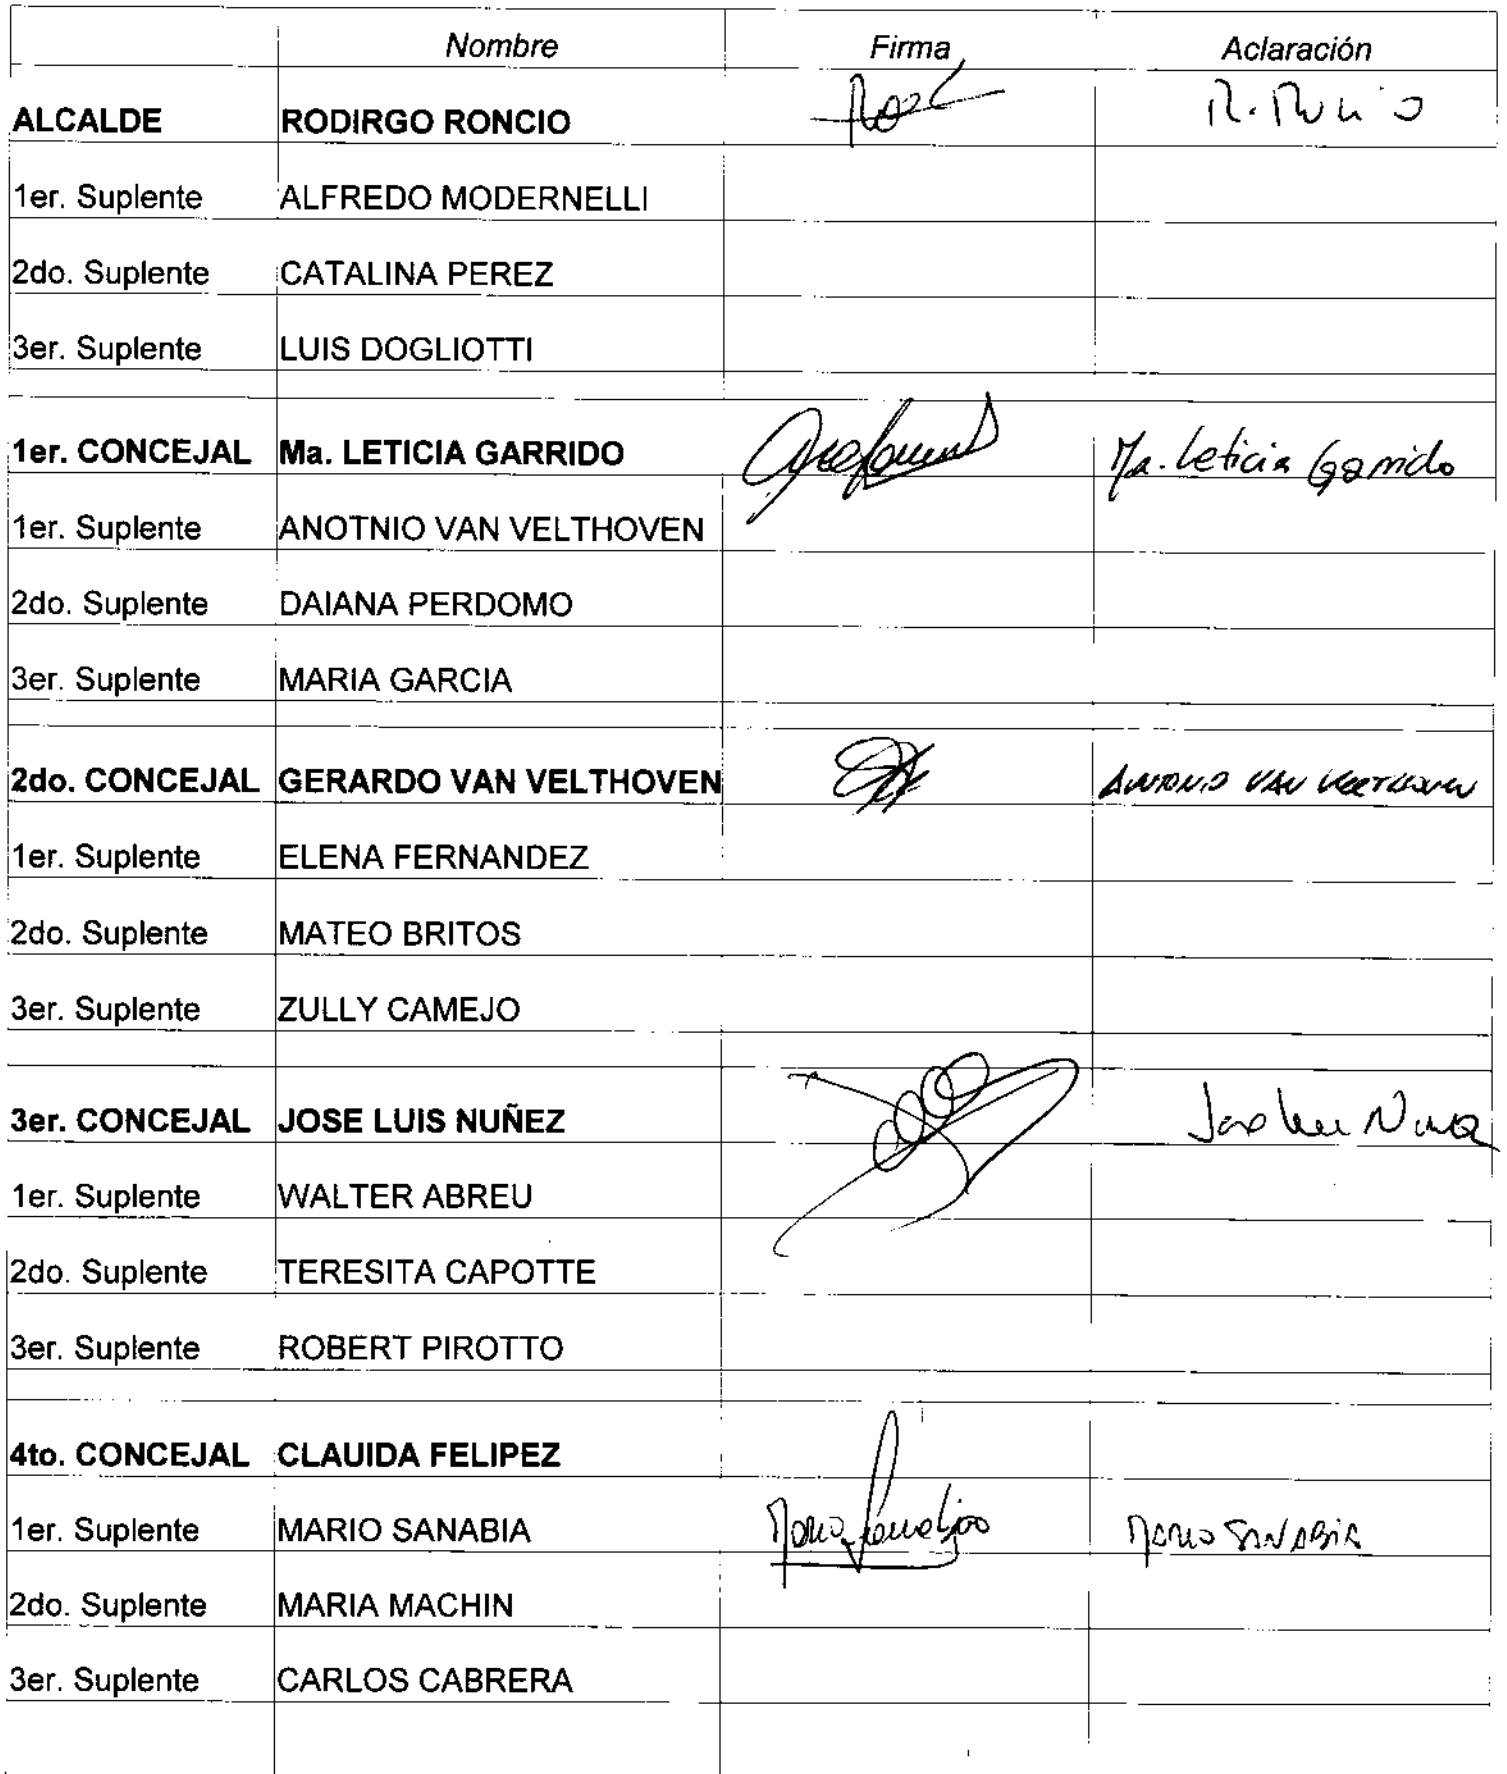 Nombre Firma Aclaración
ALCALDE RODIRGO RONCIO R. Roncio
1er. Suplente ALFREDO MODERNELLI
2do. Suplente CATALINA PEREZ
3er. Suplente LUIS DOGLIOTTI
1er. CONCEJAL Ma. LETICIA GARRIDO Ma. Leticia Garrido
1er. Suplente ANOTNIO VAN VELTHOVEN
2do. Suplente DAIANA PERDOMO
3er. Suplente MARIA GARCIA
2do. CONCEJAL GERARDO VAN VELTHOVEN ANTONIO VAN VELTHOVEN
1er. Suplente ELENA FERNANDEZ
2do. Suplente MATEO BRITOS
3er. Suplente ZULLY CAMEJO
3er. CONCEJAL JOSE LUIS NUÑEZ Jose Luis Nuñez
1er. Suplente WALTER ABREU
2do. Suplente TERESITA CAPOTTE
3er. Suplente ROBERT PIROTTO
4to. CONCEJAL CLAUIDA FELIPEZ
1er. Suplente MARIO SANABIA MARIO SANABIA
2do. Suplente MARIA MACHIN
3er. Suplente CARLOS CABRERA